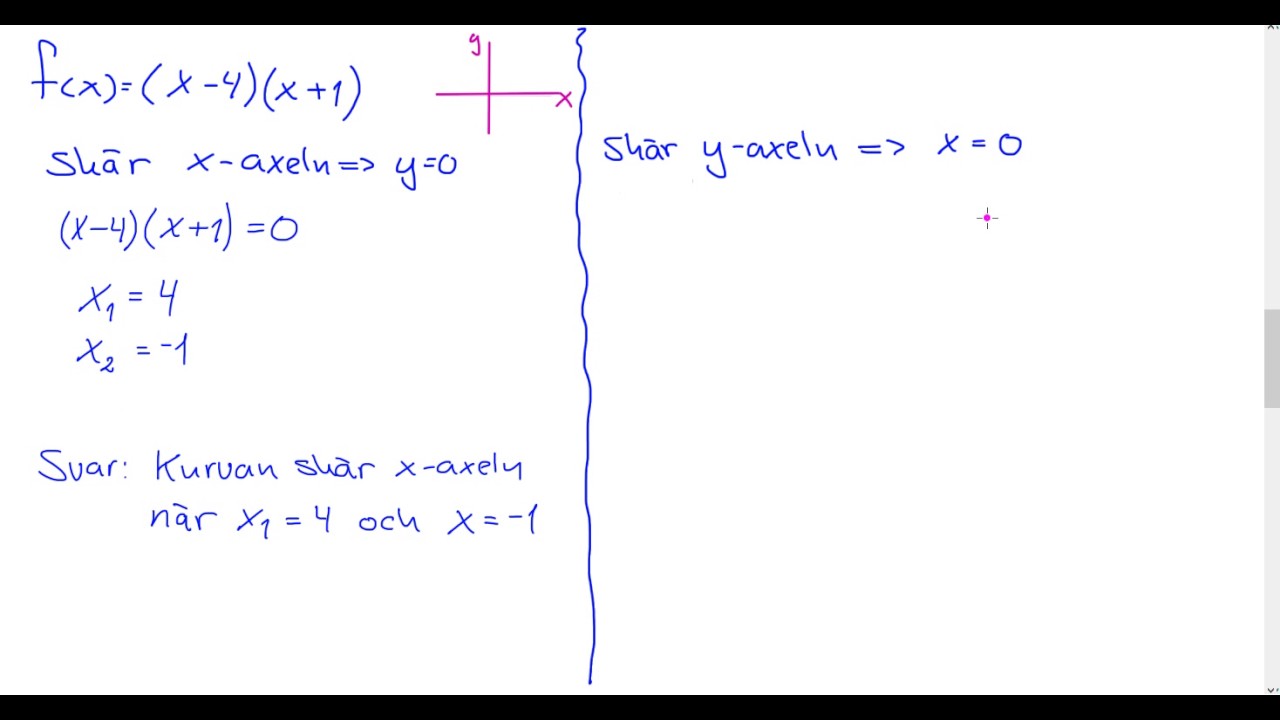 f(x)=(x-4)(x+1)
y
x
Skär x-axeln => y=0
(x-4)(x+1)=0
x₁ = 4
x₂ = -1
Svar: Kurvan skär x-axeln
när x₁ = 4 och x = -1
Skär y-axeln => x = 0